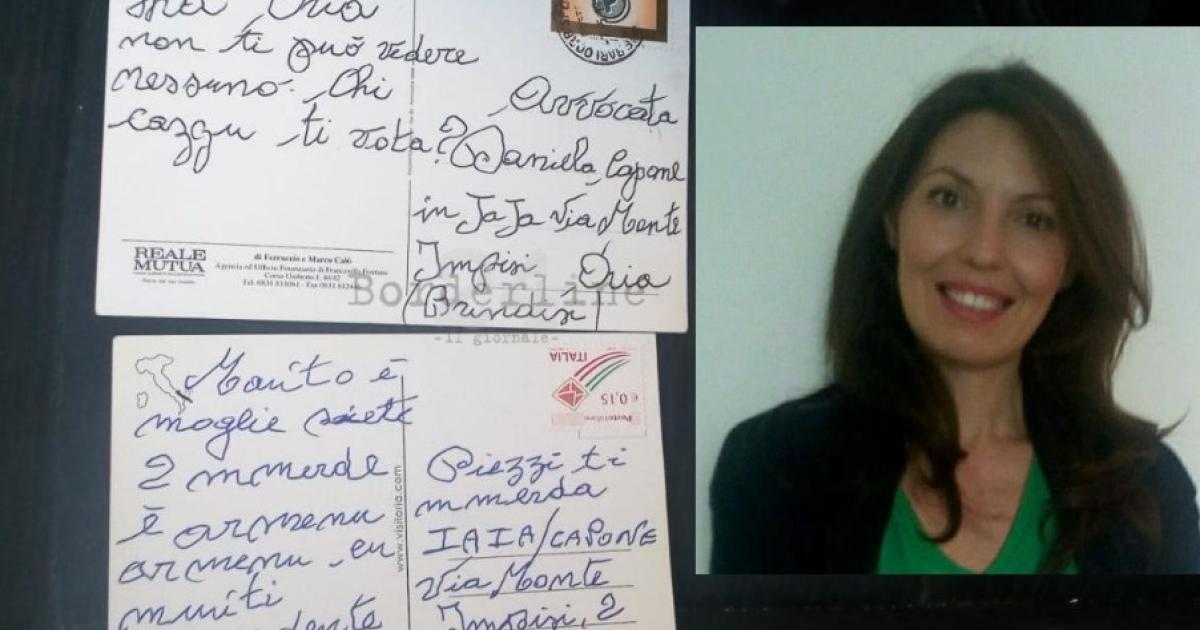 Oria
non ti può vedere
nessuno. Chi
cazzu ti vota?
Avvocata
Daniela Capone
in JaJa Via Monte
Impisi Oria
(Brindisi)
REALE
MUTUA
di Ferruccio e Marco Calò
Agenzia ed Ufficio Finanziario di Francavilla Fontana
Corso Umberto I, 40/42
Borderline
-il giornale-
Marito è
moglie siete
2 mmerde
è armenu
armenu eu
muriti
www.visitoria.com
ITALIA
€0,15
Posteitaliane
Piezzi ti
mmerda
IAIA/CAPONE
Via Monte
Impisi, 2